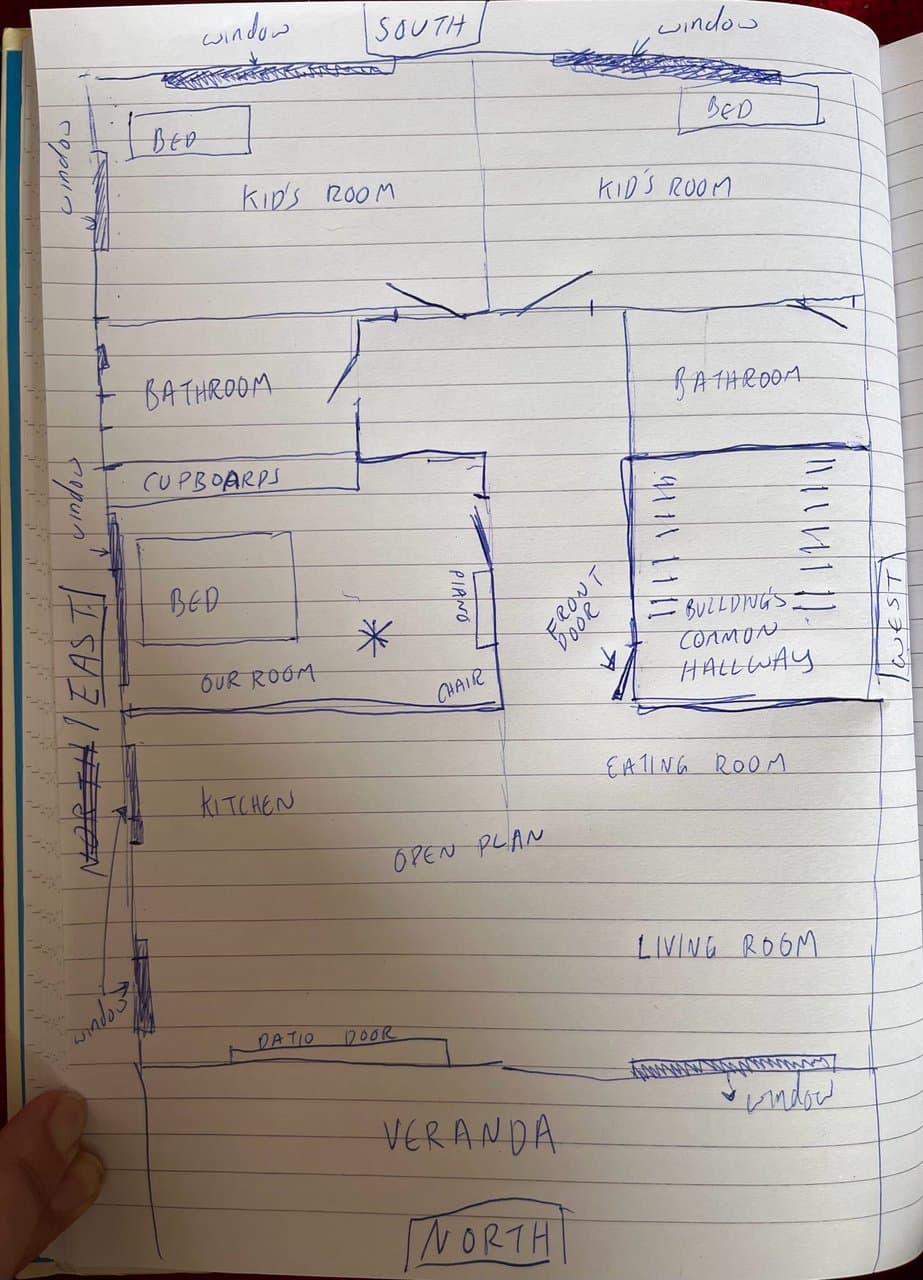 window
SOUTH
window
BED
BED
window
KID'S ROOM
KID'S ROOM
BATHROOM
BATHROOM
CUPBOARDS
window
BED
PIANO
FRONT
DOOR
BUILDING'S
COMMON
HALLWAY
WEST
NORTH / EAST
OUR ROOM
CHAIR
EATING ROOM
KITCHEN
OPEN PLAN
LIVING ROOM
window
PATIO DOOR
window
VERANDA
NORTH